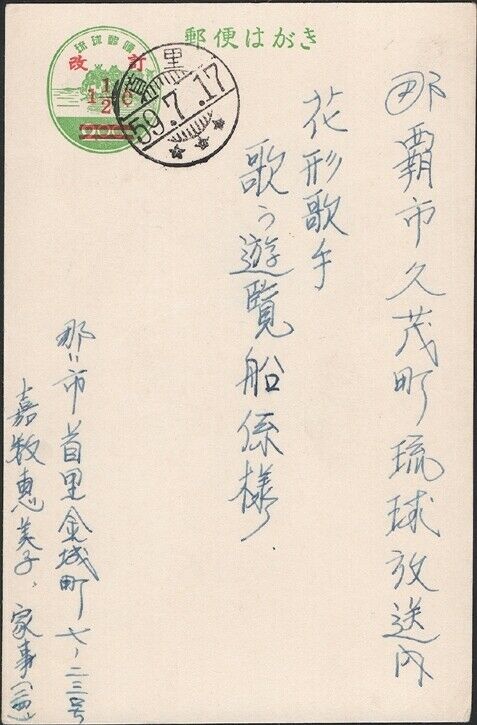 郵便はがき
琉球郵便
改訂
1 1/2 ¢
首里
59.7.17
那覇市久茂町琉球放送内
花形歌手
歌う遊覧船係様
那〃市首里金城町七ノ二三号
嘉数恵美子、家事